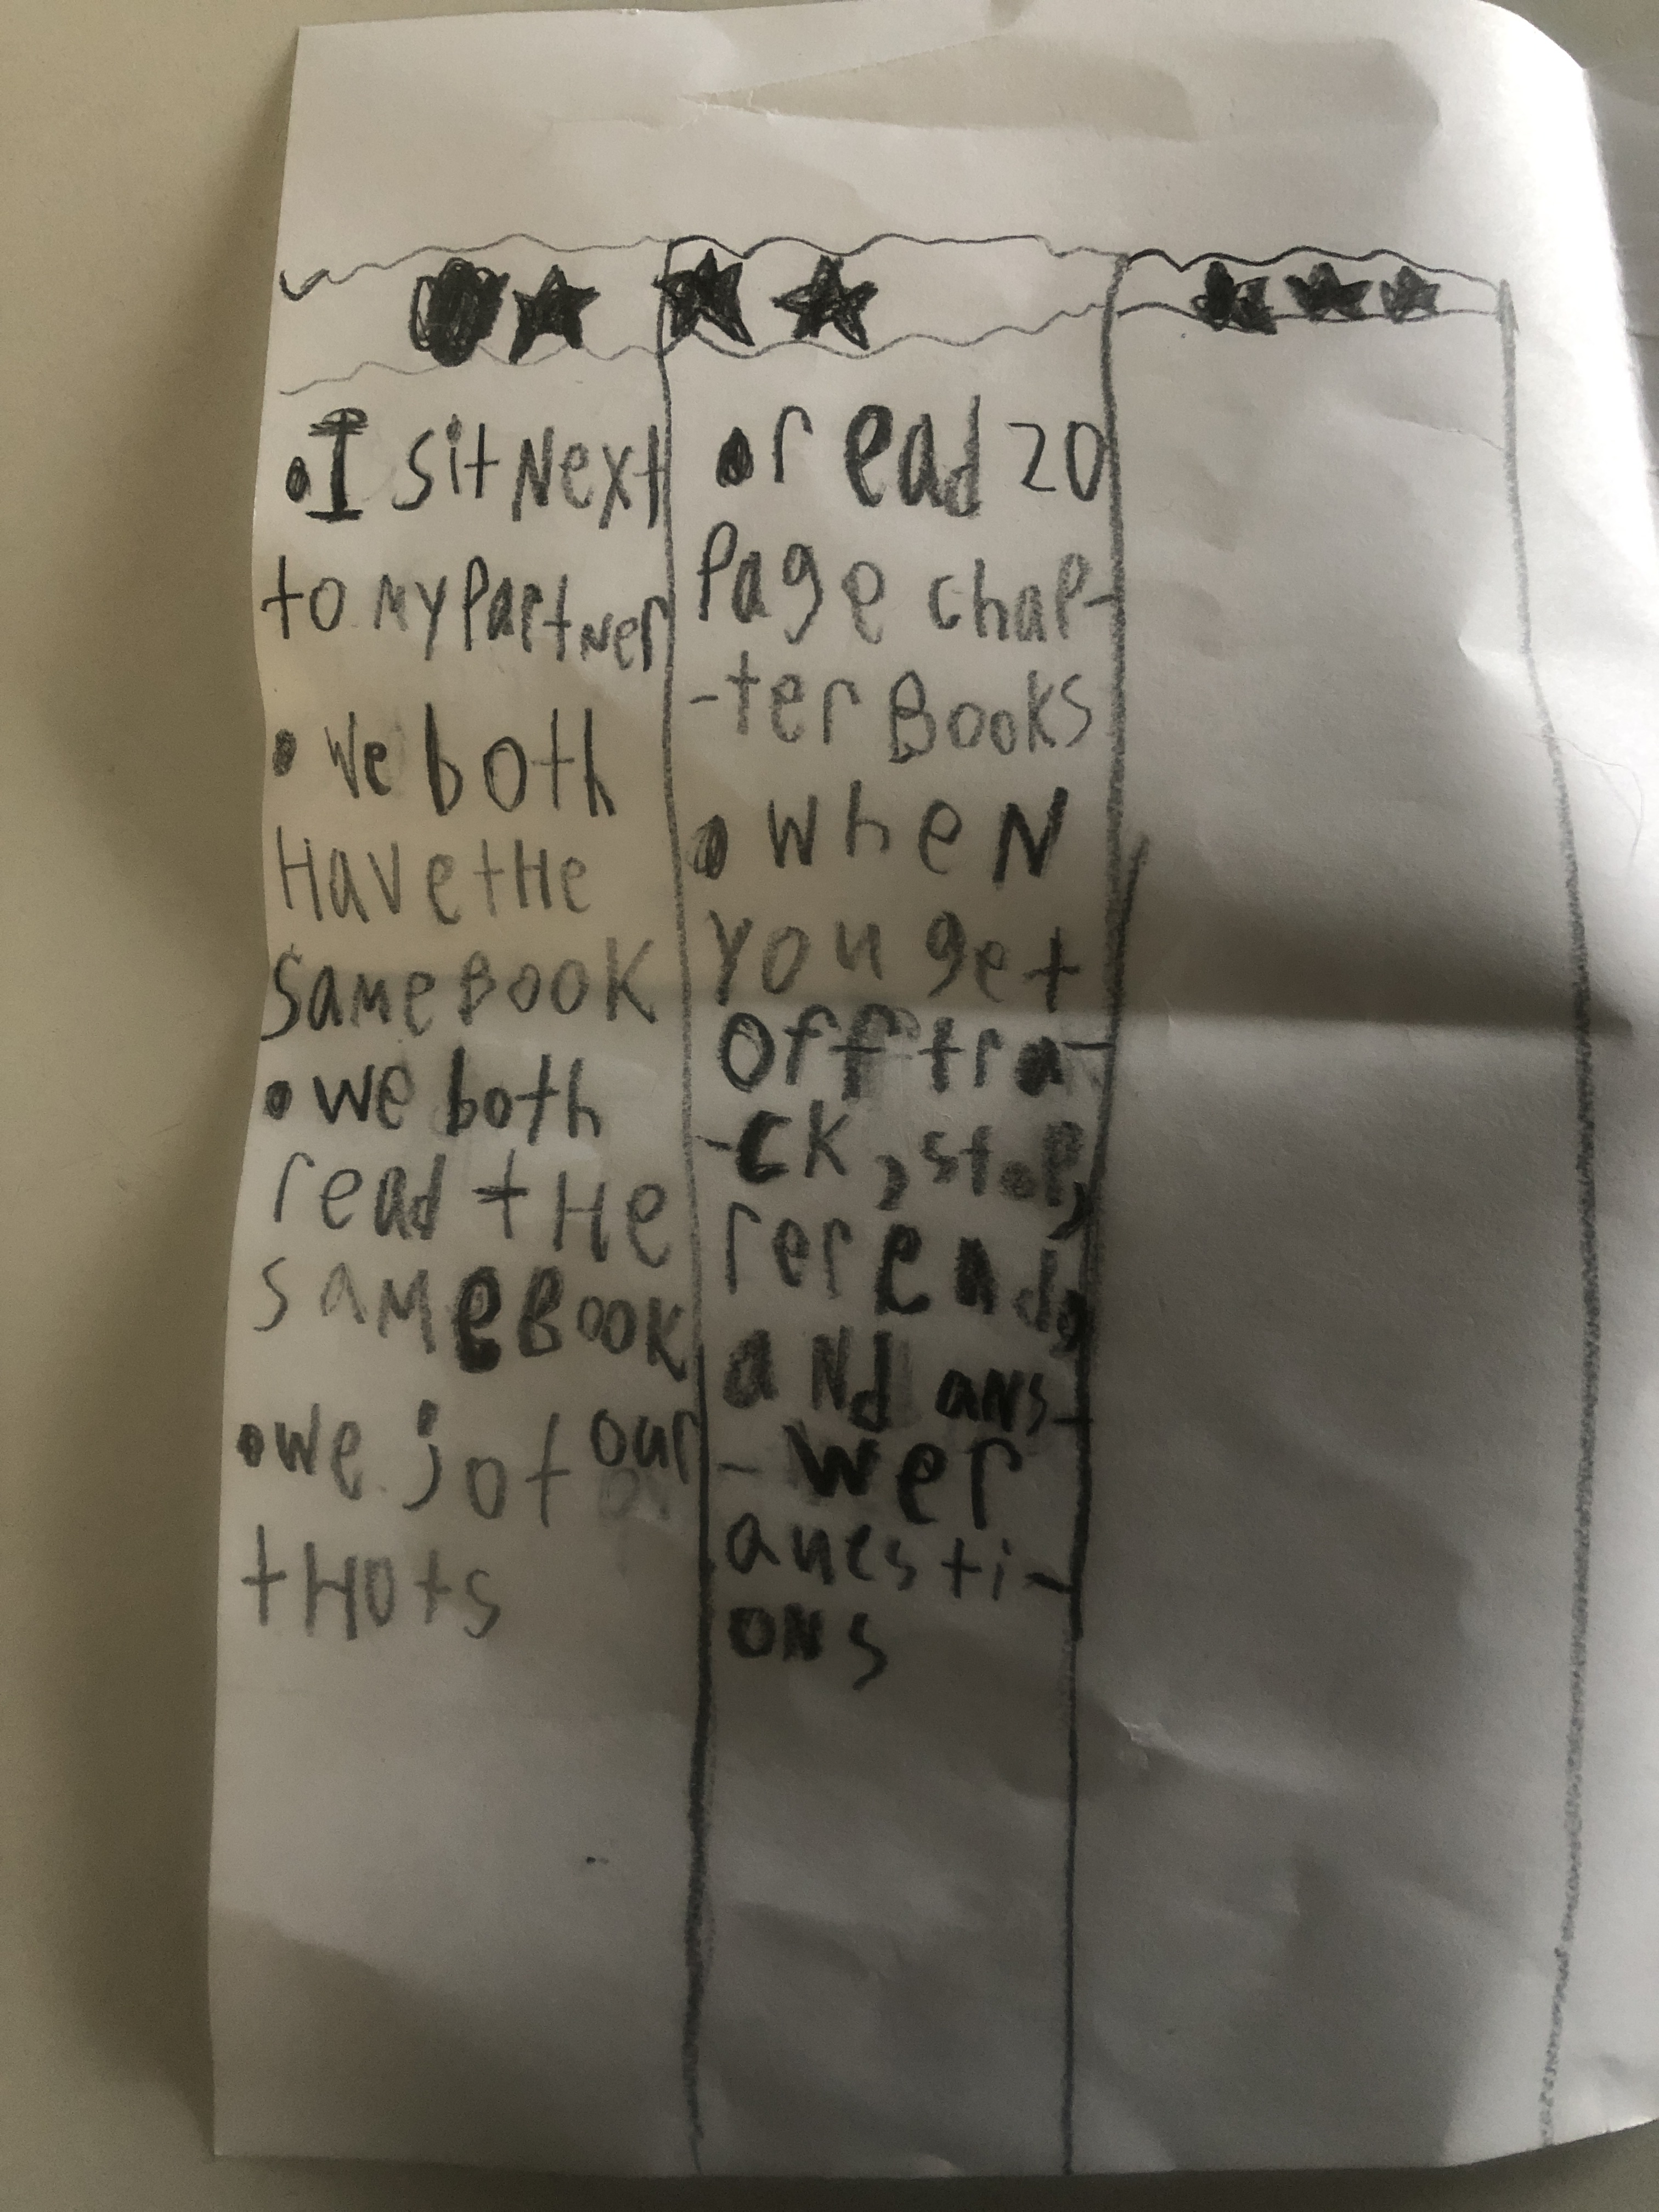 • I sit Next
to My Partner
• We both
Have tHe
same Book
• we both
read tHe
same Book
• we jot our
tHots
• read 20
Page chap-
-ter Books
• wheN
you get
off tra-
-ck, stop,
reread,
aNd aNs-
-wer
questi-
oNs